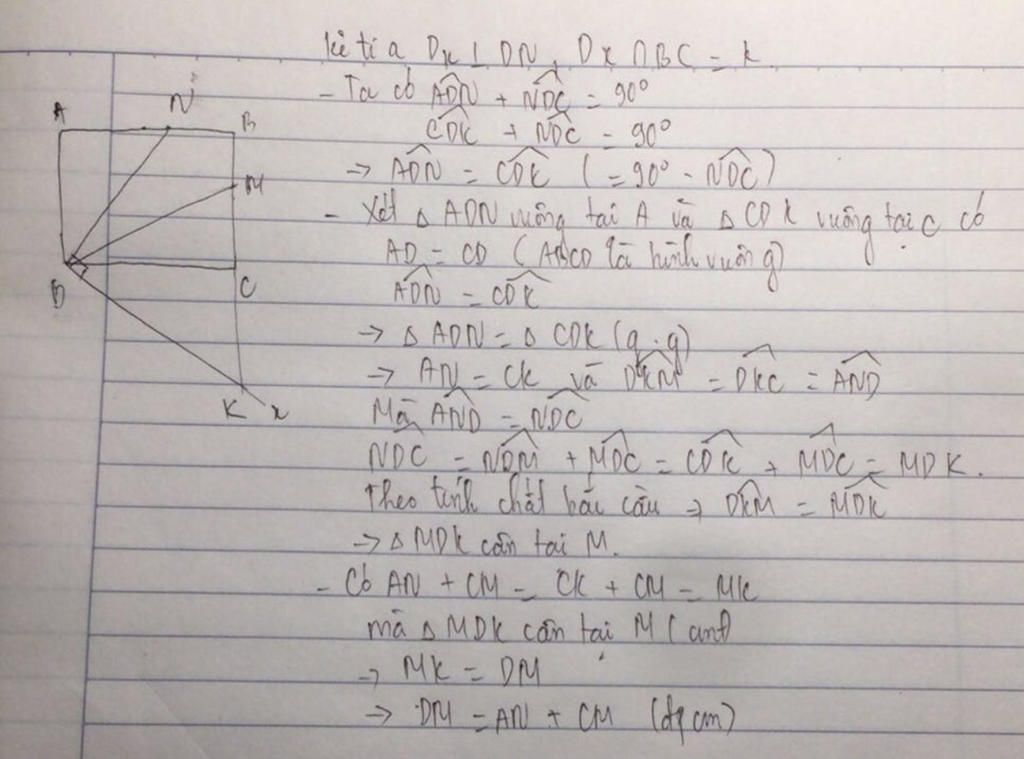 kẻ tia Dx ⊥ DN, Dx ∩ BC = K
- Ta có ADN̂ + NDĈ = 90°
CDK̂ + NDĈ = 90°
→ ADN̂ = CDK̂ (= 90° - NDĈ)
- Xét Δ ADN vuông tại A và Δ CDK vuông tại C có
AD = CD (ABCD là hình vuông)
ADN̂ = CDK̂
→ Δ ADN = Δ CDK (g.g)
→ AN = CK và DKM̂ = DKĈ = AND̂
Mà AND̂ = NDĈ
NDĈ = NDM̂ + MDĈ = CDK̂ + MDĈ = MDK.
Theo tính chất bắc cầu → DKM̂ = MDK̂
→ Δ MDK cân tại M.
- Có AN + CM = CK + CM = MK
mà Δ MDK cân tại M (cmt)
→ MK = DM
→ DM = AN + CM (đpcm)
A N B
M
D C
K x